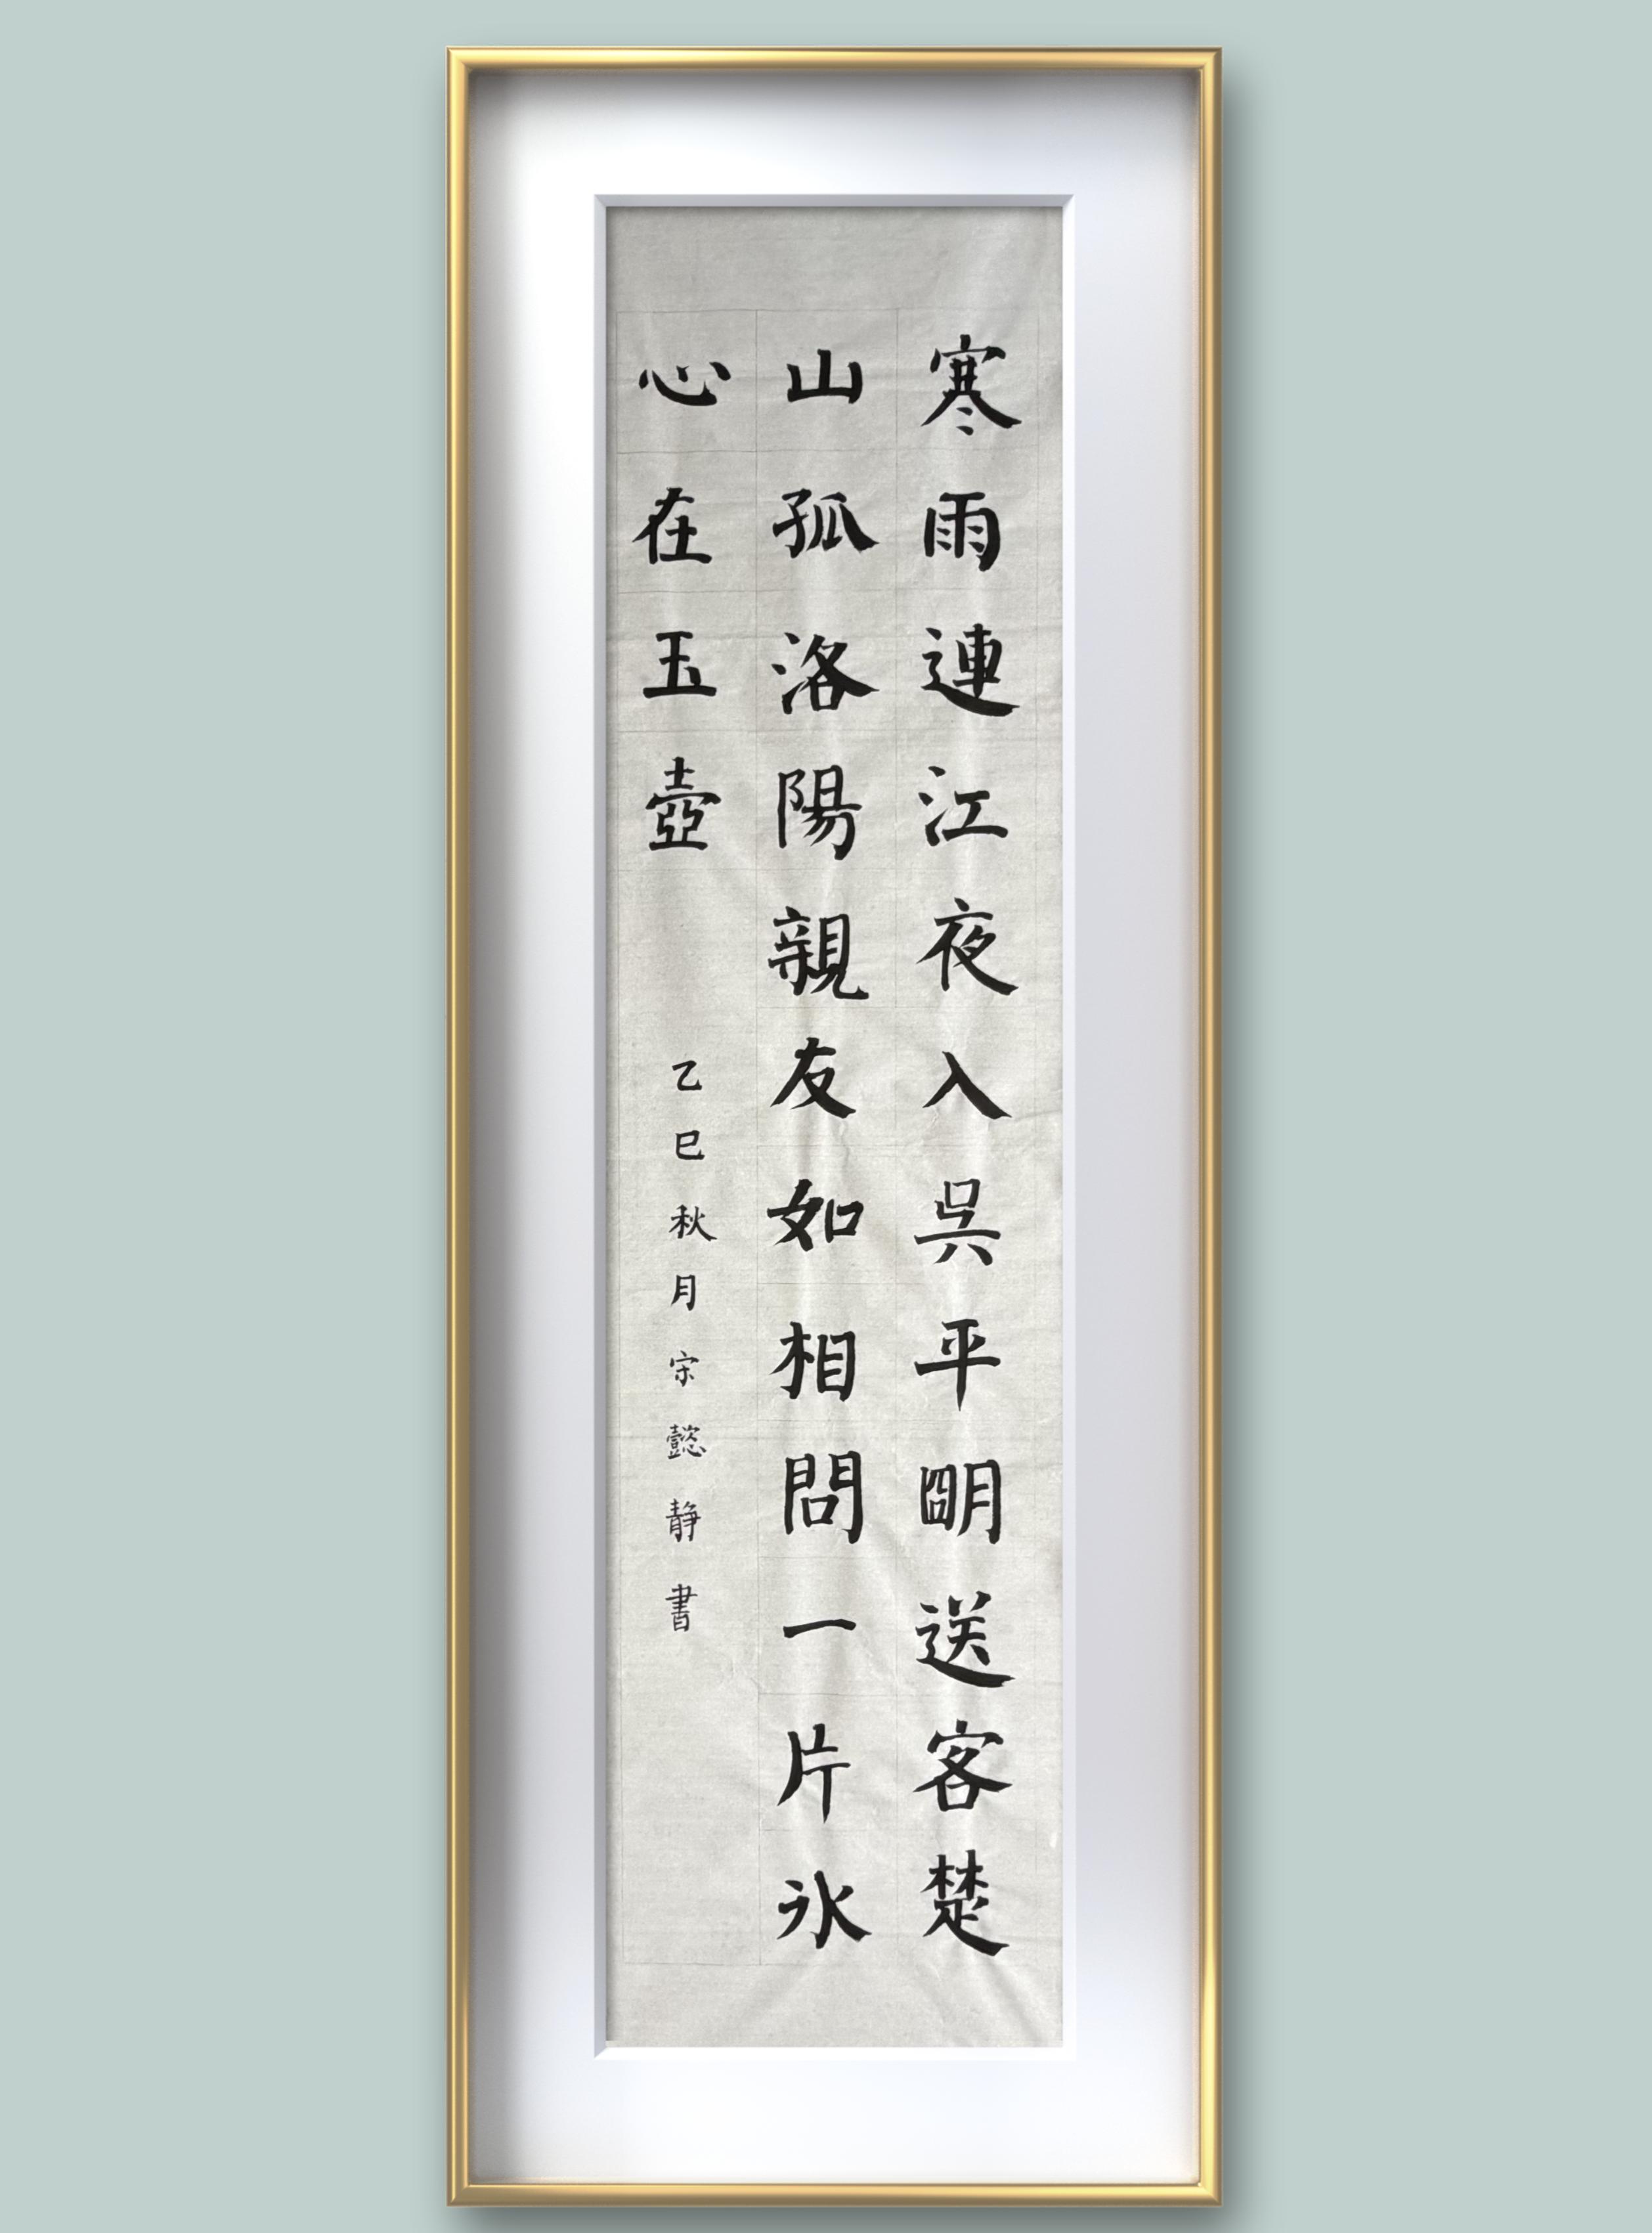 寒雨連江夜入吳平明送客楚
山孤洛陽親友如相問一片氷
心在玉壺
乙巳秋月宋懿靜書